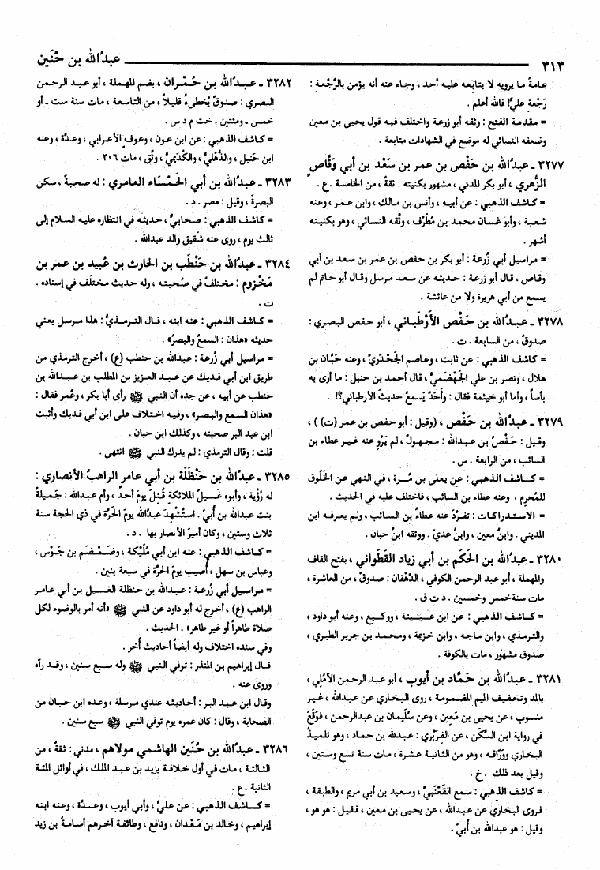 ٣١٣ عبدُالله بن حُنَين
عامة ما يرويه لا يتابعه عليه أحد ، وجاء عنه أنه يؤمن بالرَّجْعة :
رَجْعة عليّ! فالله أعلم .
= مقدمة الفتح : وثقه أبو زرعة واختلف فيه قول يحيى بن معين
وضعفه النسائي له موضع في الشهادات متابعة .
٣٢٧٧ ـ عبدُالله بن حَفْص بن عمر بن سَعْد بن أبي وَقّاص
الزُّهري ، أبو بكر المدني ، مشهور بكنيته . ثقة ، من الخامسة . ع .
= كاشف الذهبي : عن أبيه ، وأنس بن مالك ، وابن عمر ، وعنه
شعبة ، وأبو غسان محمد بن مُطَرِّف ، وثقه النسائي ، وهو بكنيته
أشهر .
= مراسيل أبي زُرعة : أبو بكر بن حفص بن عمر بن سعد بن أبي
وقاص . قال أبو زرعة : حديثه عن سعد مرسل وقال أبو حاتم لم
يسمع من أبي هريرة ولا من عائشة .
٣٢٧٨ ـ عبدُالله بن حَفْص الأَرْطَباني ، أبو حفص البصري :
صدوق ، من السابعة . ت .
= كاشف الذهبي : عن ثابت ، وعاصم الجَحْدَري ، وعنه حَبّان بن
هلال ، ونصر بن علي الجَهْضَميُّ ، قال أحمد بن حنبل : ما أرى به
بأساً ، وأما أبو خيثمة فقال : وأَحَدٌ يَسمعُ حديثَ الأَرطباني؟!
٣٢٧٩ ـ عبدُالله بن حَفْص ، (وقيل : أبو حفص بن عمر (ت)) ،
وقيل : حَفْصُ بن عبدالله : مجهول ، لم يَرْوِ عنه غير عطاء بن
السائب ، من الرابعة . س .
= كاشف الذهبي : عن يعلى بن مُرَّة ، في النهي عن الخَلُوق
للمُحرِم ، وعنه عطاء بن السائب ، فاختلف عليه في الحديث .
= الاستدراكات : تفرَّد عنه عطاءُ بن السائب ، ولم يعرفه ابن
المديني ، وابنُ معين ، وابنُ عديّ . ووثقه ابن حبان .
٣٢٨٠ ـ عبدُالله بن الحَكَم بن أبي زياد القَطَواني ، بفتح القاف
والمهملة ، أبو عبد الرحمن الكوفي ، الدِّهْقان : صدوق ، من العاشرة ،
مات سنة خمس وخمسين . د ت ق .
= كاشف الذهبي : عن ابن عيينة ، ووكيع ، وعنه أبو داود ،
والترمذي ، وابن ماجه ، وابن خزيمة ، ومحمد بن جرير الطبري ،
صدوق مشهور ، مات بالكوفة .
٣٢٨١ ـ عبدُالله بن حَمّاد بن أيوب ، أبو عبد الرحمن الآمُلي ،
بالمد وتخفيف الميم المضمومة ، روى البخاري عن عبدالله ، غير
منسوب ، عن يحيى بن مَعين ، وعن سُلَيمان بن عبدالرحمن ، فوَقَعَ
في رواية ابن السَّكَن ، عن الفِرَبْري : عبدالله بن حماد ، وهو تلميذُ
البخاري ووَرَّاقه ، وهو من الثانية عشرة ، مات سنة تسع وستين ،
وقيل بعد ذلك . خ .
= كاشف الذهبي : سمع القَعْنَبيَّ ، وسعيد بن أبي مريم ، والطبقة ،
فروى البخاري عن عبدالله ، عن يحيى بن معين ، فقيل : هو هو ،
وقيل : هو عبدالله بن أُبيّ .
٣٢٨٢ ـ عبدُالله بن حُمْران ، بضم المهملة ، أبو عبد الرحمن
البصري : صدوق يُخطىء قليلاً ، من التاسعة ، مات سنة ست ـ أو
خمس ـ ومئتين . خت م د س .
= كاشف الذهبي : عن ابن عون ، وعوفٍ الأعرابي ، وعدَّة ، وعنه
ابن حنبل ، والذُّهلي ، والكُدَيميُّ ، وثّق ، مات ٢٠٦ .
٣٢٨٣ ـ عبدُالله بن أبي الحَمْساء العامري : له صحبةٌ ، سكن
البصرةَ ، وقيل : مصر . د .
= كاشف الذهبي : صحابيٌّ ، حديثه في انتظاره عليه السلام إلى
ثالث يوم ، روى عنه شقيق والد عبدالله .
٣٢٨٤ ـ عبدُالله بن حَنْطَب بن الحارث بن عُبيد بن عمر بن
مَخْزوم : مختلفٌ في صُحبته ، وله حديث مختلف في إسناده .
ت .
= كاشف الذهبي : عنه ابنه ، قال الترمذيُّ : هذا مرسل يعني
حديثه «هذان : السمعُ والبصرُ» .
= مراسيل أبي زُرعة : عبدالله بن حنطب (ع) ، أخرج الترمذي من
طريق ابن أبي فديك عن عبد العزيز بن المطلب بن عبدالله بن
حنطب عن أبيه ، عن جده ، أن النبي ﷺ رأى أبا بكر ، وعمر فقال :
«هذان السمع والبصر» ، وفيه اختلاف على ابن أبي فديك وأثبت
ابن عبد البر صحبته ، وكذلك ابن حبان .
قلت : وقال الترمذي : لم يدرك النبي ﷺ انتهى .
٣٢٨٥ ـ عبدُالله بن حَنْظَلَة بن أبي عامر الراهب الأنصاري :
له رُؤية ، وأبوه غَسيلُ الملائكةِ قُتِلَ يومَ أُحدٍ ، وأم عبدالله : جَميلةُ
بنت عبدالله بن أُبيّ . استُشهِدَ عبدُالله يومَ الحَرَّة في ذي الحجة سنة
ثلاث وستين ، وكان أميرَ الأنصار بها . د .
= كاشف الذهبي : عنه ابن أبي مُلَيكة ، وضَمْضَم بن جَوْس ،
وعباس بن سهل ، أُصيبَ يومَ الحَرَّة في سبعة بنين .
= مراسيل أبي زُرعة : عبدالله بن حنظلة الغسيل بن أبي عامر
الراهب (ع) ، أخرج له أبو داود عن النبي ﷺ «أنه أمر بالوضوء لكل
صلاة طاهراً أو غير طاهر» . الحديث .
وفي سنده اختلاف وله أيضاً أحاديث أُخر .
قال إبراهيم بن المنذر : توفي النبي ﷺ وله سبع سنين ، وقد رآه
وروى عنه .
وقال ابن عبد البر : أحاديثه عندي مرسلة ، وعده ابن حبان من
الصحابة ، وقال : كان عمره يوم توفي النبي ﷺ سبع سنين .
٣٢٨٦ ـ عبدُالله بن حُنَين الهاشمي مولاهم ، مدني : ثقة ، من
الثالثة ، مات في أول خلافة يزيد بن عبد الملك ، في أوائل المئة
الثانية . ع .
= كاشف الذهبي : عن عليّ ، وأبي أيوب ، وعدة ، وعنه ابنه
إبراهيم ، وخالد بن مَعْدان ، ونافع ، وطائفة آخرهم أسامةُ بن زيد